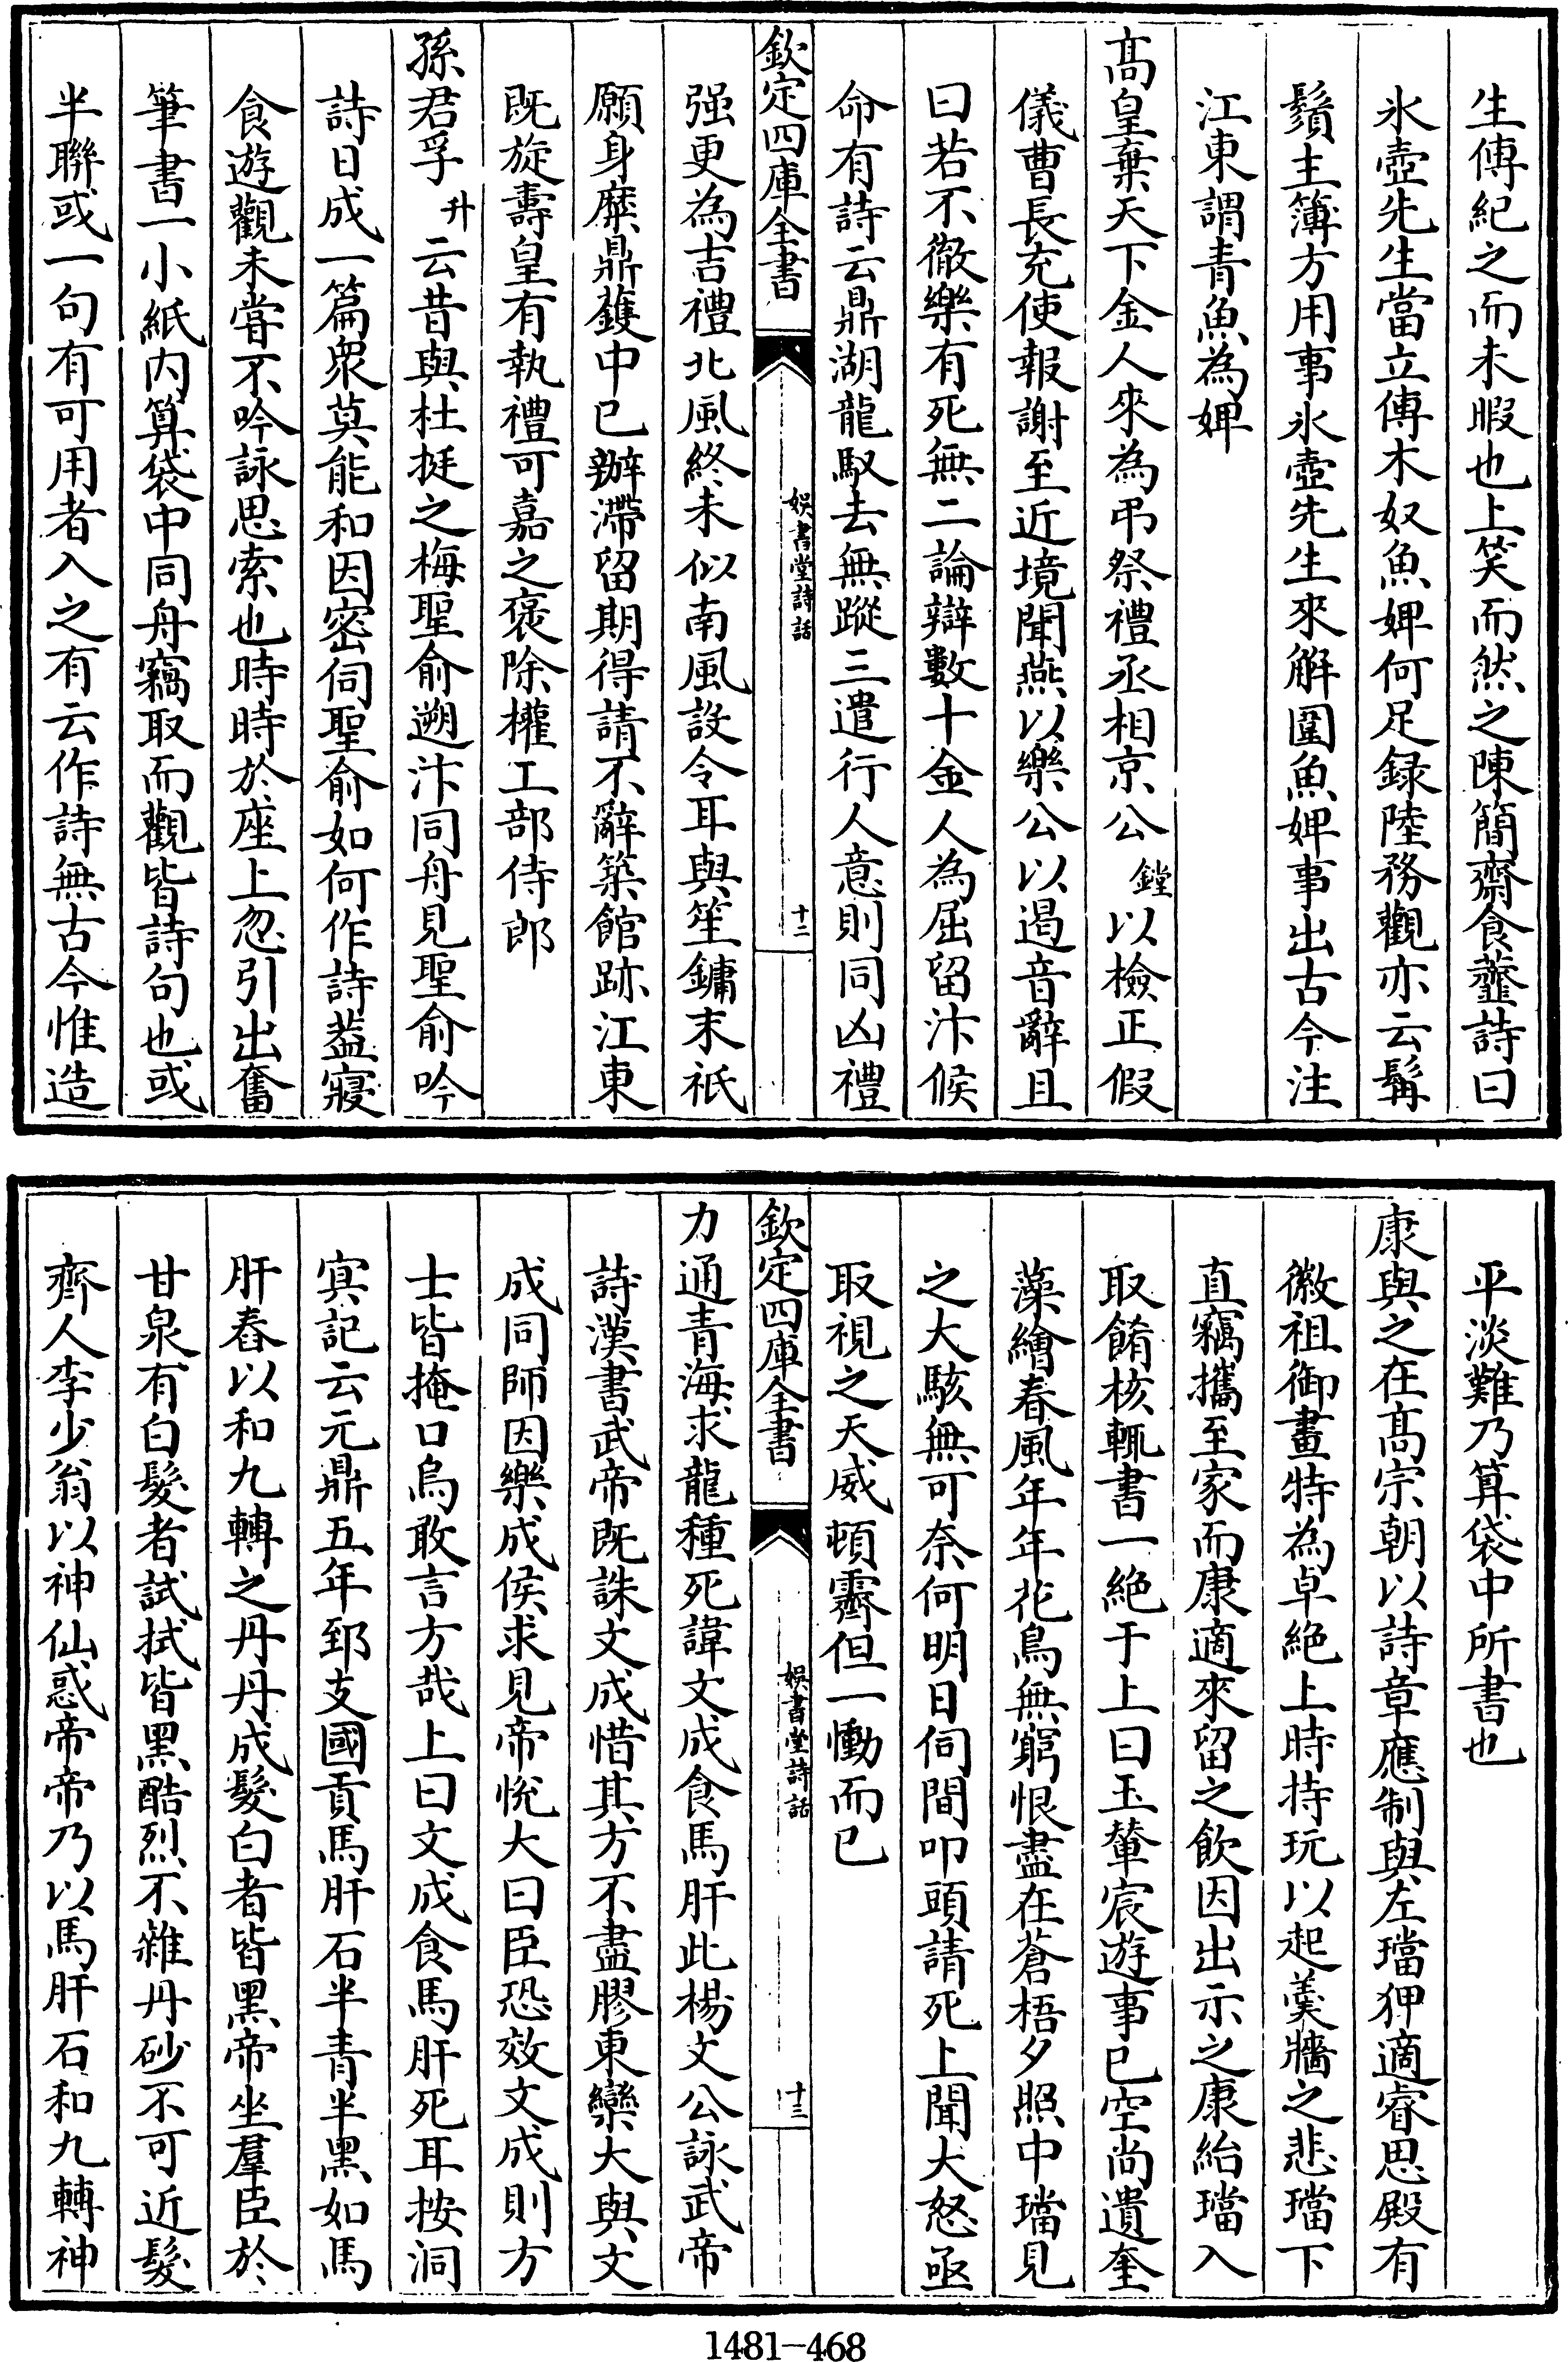 生傳紀之而未暇也上笑而然之陳簡齋食虀詩曰
氷壺先生當立傳木奴魚婢何足録陸務觀亦云髯
鬚主簿方用事氷壺先生來解圍魚婢事出古今注
江東謂青魚為婢
髙皇棄天下金人來為弔祭禮丞相京公鏜以檢正假
儀曹長充使報謝至近境聞燕以樂公以遏音辭且
曰若不徹樂有死無二論辯數十金人為屈留汴候
命有詩云鼎湖龍馭去無蹤三遣行人意則同凶禮
欽定四庫全書
娛書堂詩話
十二
强更為吉禮北風終未似南風設令耳與笙鏞末祇
願身糜鼎鑊中已辦滯留期得請不辭築館跡江東
既旋壽皇有執禮可嘉之褒除權工部侍郎
孫君孚升云昔與杜挺之梅聖俞遡汴同舟見聖俞吟
詩日成一篇衆莫能和因密伺聖俞如何作詩葢寢
食遊觀未嘗不吟詠思索也時時於座上忽引出奮
筆書一小紙内算袋中同舟竊取而觀皆詩句也或
半聯或一句有可用者入之有云作詩無古今惟造
平淡難乃算袋中所書也
康與之在髙宗朝以詩章應制與左璫狎適睿思殿有
徽祖御畫特為卓絶上時持玩以起羹牆之悲璫下
直竊攜至家而康適來留之飲因出示之康紿璫入
取餚核輒書一絶于上曰玉輦宸遊事已空尚遺奎
藻繪春風年年花鳥無窮恨盡在蒼梧夕照中璫見
之大駭無可奈何明日伺間叩頭請死上聞大怒亟
取視之天威頓霽但一慟而已
欽定四庫全書
娛書堂詩話
十三
力通青海求龍種死諱文成食馬肝此楊文公詠武帝
詩漢書武帝既誅文成惜其方不盡膠東欒大與文
成同師因樂成侯求見帝悅大曰臣恐效文成則方
士皆掩口烏敢言方哉上曰文成食馬肝死耳按洞
㝠記云元鼎五年郅支國貢馬肝石半青半黑如馬
肝舂以和九轉之丹丹成髮白者皆黑帝坐羣臣於
甘泉有白髮者試拭皆黑酷烈不雜丹砂不可近髮
齊人李少翁以神仙惑帝帝乃以馬肝石和九轉神
1481-468